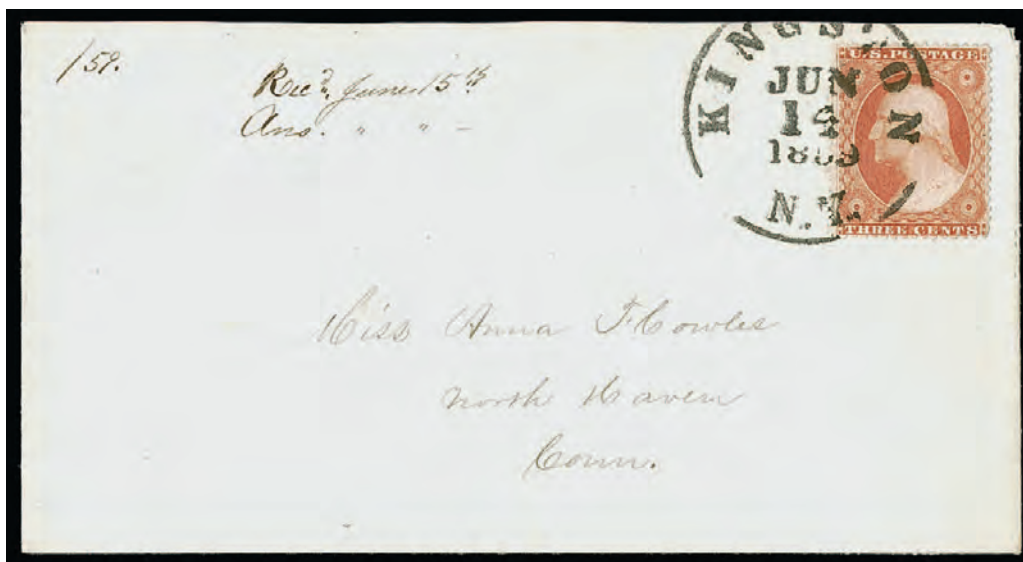 /59.
Rec'd. June 15th
Ans. " " -
KINGSTON
JUN
14
1859
N.Y.
U.S. POSTAGE
THREE CENTS
Miss Anna F Cowles
North Haven
Conn.